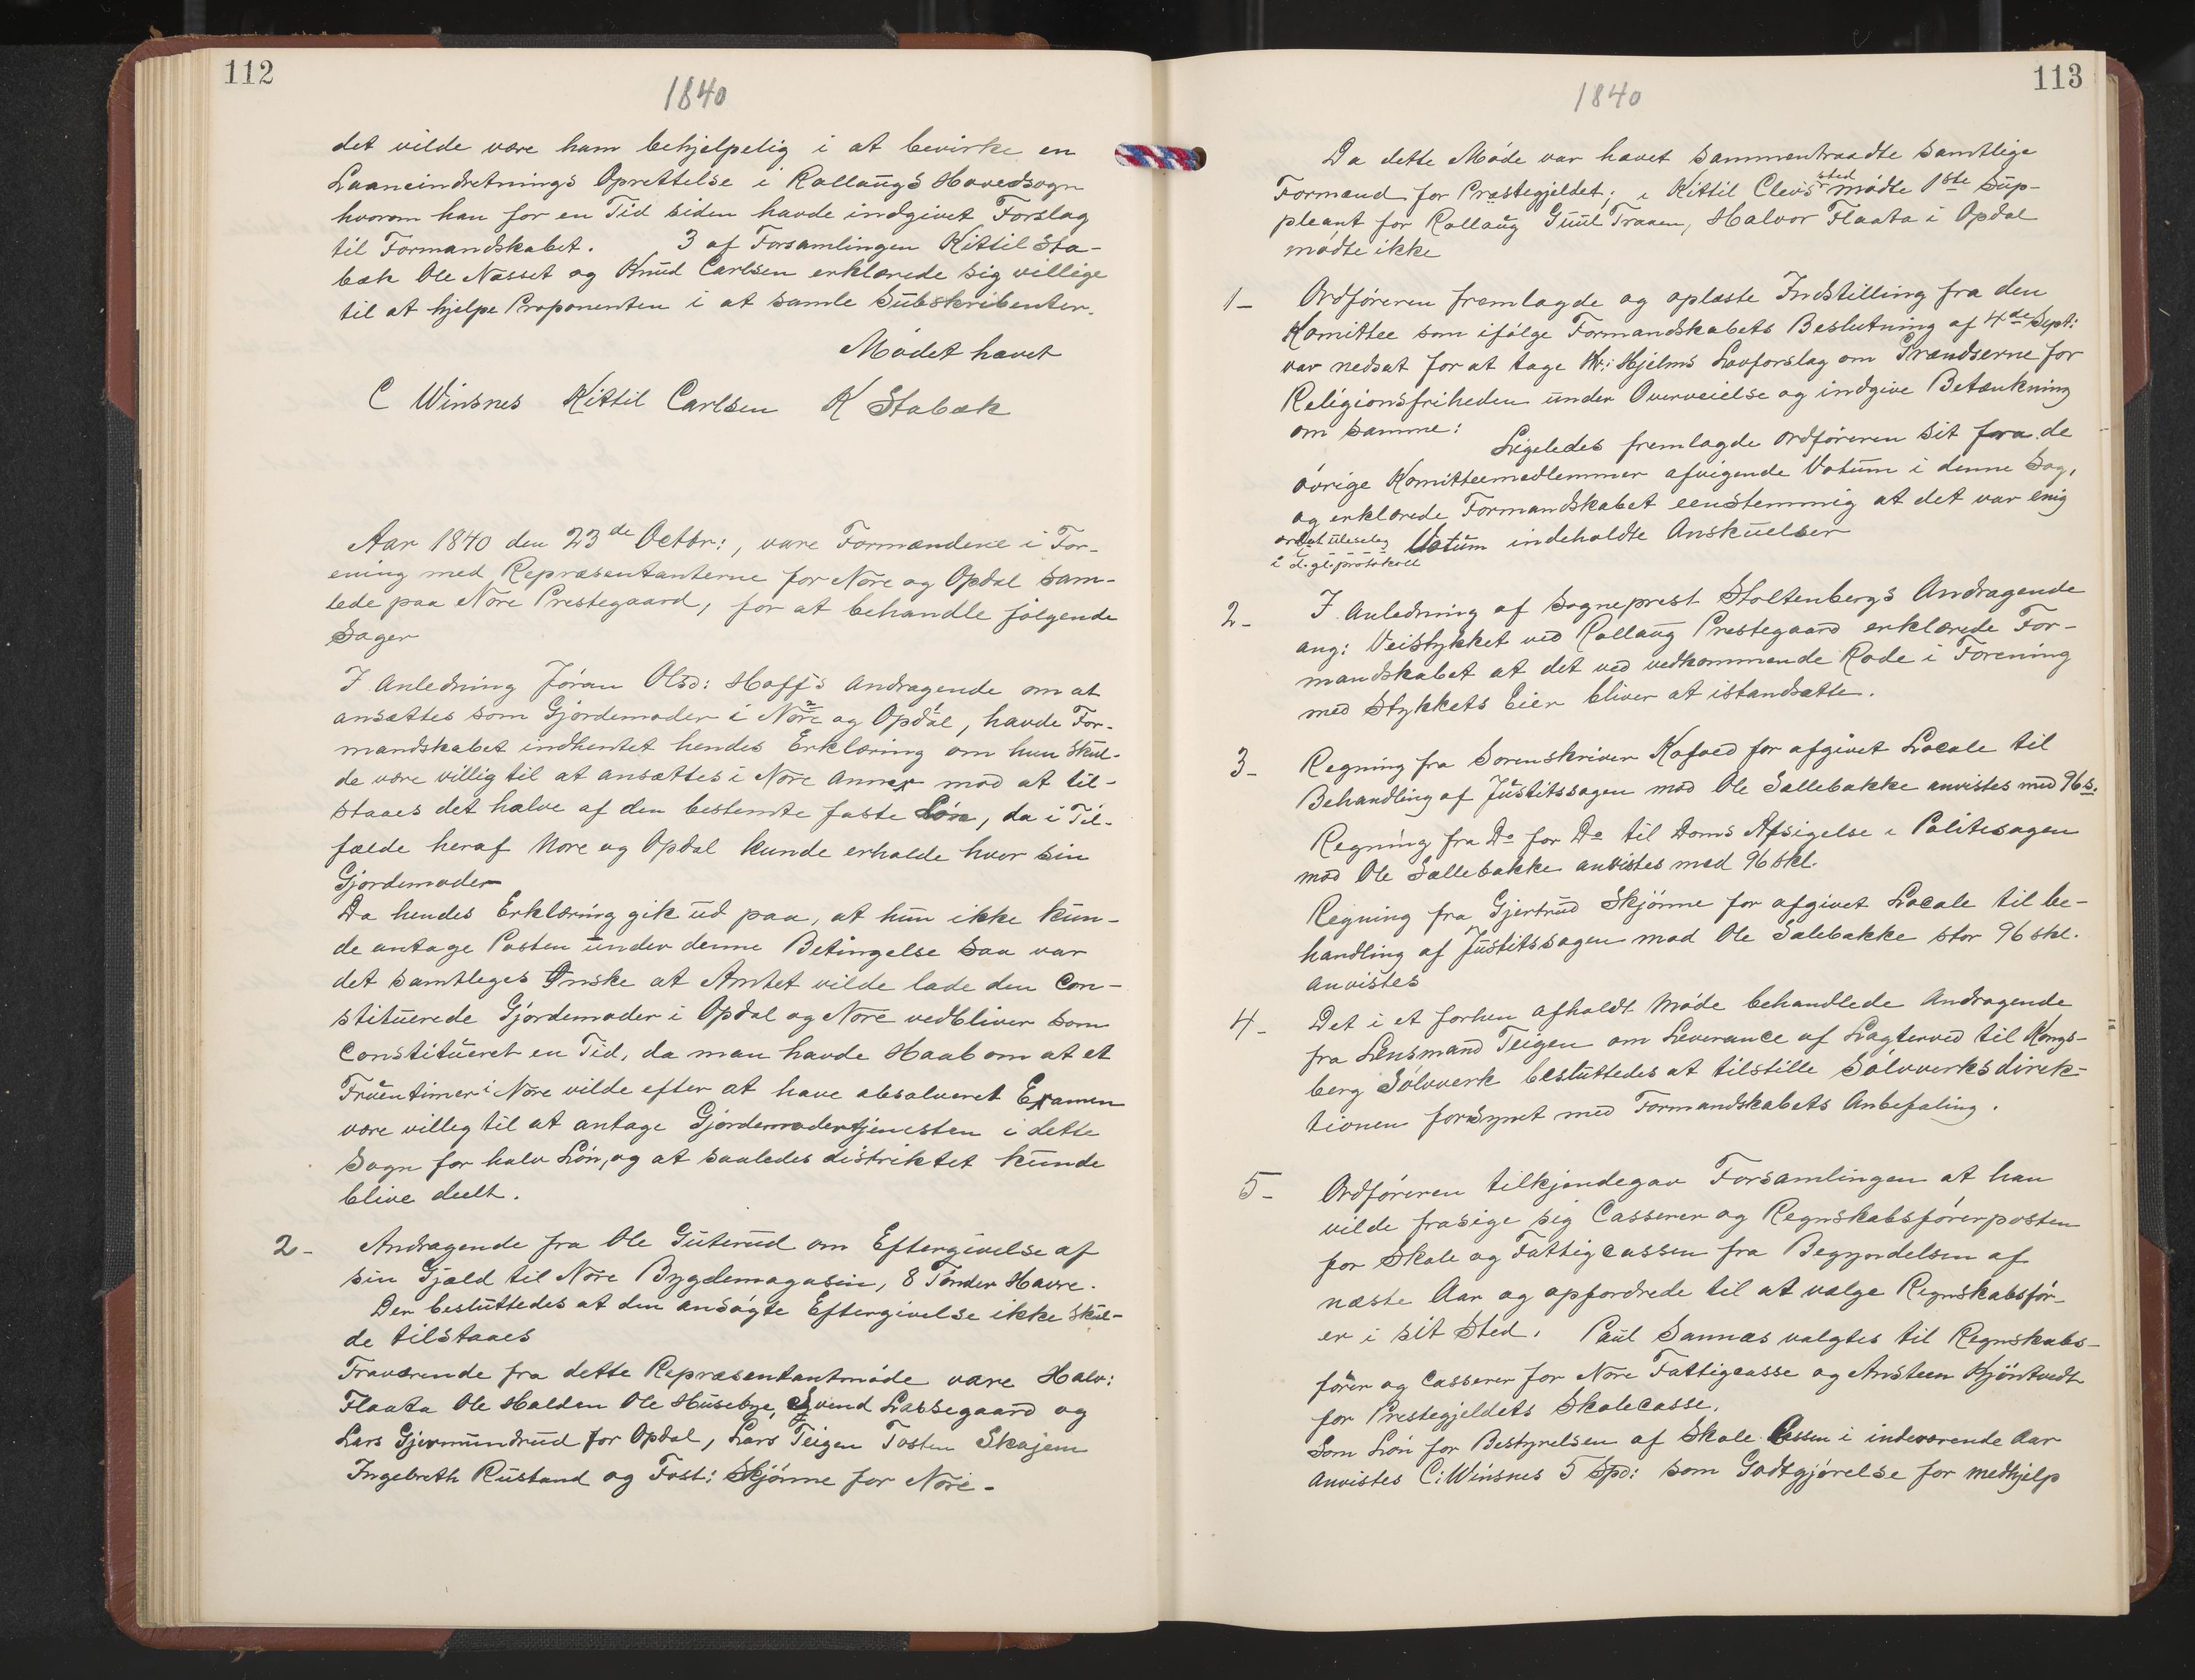 112
1840
det vilde være ham behjelpelig i at bevirke en
Laaneindretnings Oprettelse i Rollaugs Hovedsogn
hvorom han for en Tid siden havde indgivet Forslag
til Formandskabet. 3 af Forsamlingen Kittil Sta-
bæk Ole Næsset og Knud Carlsen erklærede sig villige
til at hjelpe Proponenten i at samle Subskribenter.
Mødet hævet
C Winsnes Kittil Carlsen K Stabæk
Aar 1840 den 23de Octbr:, vare Formændene i For-
ening med Repræsentanterne for Nore og Opdal sam-
lede paa Nore Prestegaard, for at behandle følgende
Sager
I Anledning Jöran Olsd: Hoffs Andragende om at
ansættes som Gjordemoder i Nore og Opdal, havde For-
mandskabet indhentet hendes Erklæring om hun skul-
de være villig til at ansættes i Nore Annex mod at til-
staaes det halve af den bestemte faste Lön, da i Til-
fælde heraf Nore og Opdal kunde erholde hver sin
Gjordemoder
Da hendes Erklæring gik ud paa, at hun ikke kun-
de antage Posten under denne Betingelse saa var
det samtleges Ønske at Amtet vilde lade den Con-
stituerede Gjordemoder i Opdal og Nore vedbliver som
Constitueret en Tid, da man havde Haab om at et
Fruentimer i Nore vilde efter at have absolveret Examen
være villeg til at antage Gjordemodertjenesten i dette
Sogn for halv Lön, og at saaledes distriktet kunde
blive deelt.
2- Andragende fra Ole Guterud om Eftergivelse af
sin Gjæld til Nore Bygdemagasin, 8 Tønder Havre.
Der besluttedes at den ansøgte Eftergivelse ikke skul-
de tilstaaes
Fraværende fra dette Repræsentantmøde vare Halv:
Flaata Ole Halden Ole Husebye, Svend Lassegaard og
Lars Gjermundrud for Opdal, Lars Teigen Tosten Skajem
Ingebreth Rustand og Tost: Skjönne for Nore.
113
1840
Da dette Møde var hævet sammentraadte samtlige
Formænd for Præstegjeldet; i Kittil Clevs sted mødte 1ste Sup-
pleant for Rollaug Guul Traaen, Halvor Flaata i Opdal
mødte ikke
1- Ordføreren fremlagde og oplæste Indstilling fra den
Komittee som ifølge Formandskabets Beslutning af 4de Sept:
var nedsat for at tage Hr: Hjelms Lovforslag om Grændserne for
Religionsfriheden under Overveielse og indgive Betænkning
om samme: Ligeledes fremlagde ordføreren sit fra de
øvrige Komitteemedlemmer afvigende Votum i denne Sag,
og erklærede Formandskabet eenstemmig at det var enig
i
Votum indeholdte Anskuelser
2- I Anledning af Sogneprest Stoltenbergs Andragende
ang: Veistykket ved Rollaug Prestegaard erklærede For-
mandskabet at det ved vedkommende Rode i Forening
med Stykkets Eier bliver at istandsætte.
3- Regning fra Sorenskriver Kofoed for afgivet Locale til
Behandling af Justitssagen mod Ole Sællebakke anvistes med 96 s.
Regning fra Do for Do til Doms Afsigelse i Politisagen
mod Ole Sællebakke anvistes med 96 skl.
Regning fra Gjertrud Skjönne for afgivet Locale til be-
handling af Justitssagen mod Ole Sælebakke stor 96 skl.
anvistes
4- Det i et forhen afholdt Møde behandlede Andragende
fra Lensmand Teigen om Leverance af Lagterved til Kongs-
berg Sølvverk besluttedes at tilstille Sølvverksdirek-
tionen forsynet med Formandskabets Anbefaling.
5- Ordføreren tilkjendegav Forsamlingen at han
vilde frasige sig Casserer og Regnskabsførerposten
for Skole og Fattigcassen fra Begyndelsen af
næste Aar og opfordrede til at vælge Regnskabsfør-
er i sit Sted. Paul Sannæs valgtes til Regnskabs-
fører og Casserer for Nore Fattigcasse og Ansteen Kjöntvedt
for Prestegjeldets Skolecasse.
Som Lön for Bestyrelsen af Skole Cassen i indeværende Aar
anvistes C: Winsnes 5 Spd: som Godtgjørelse for medhjelp